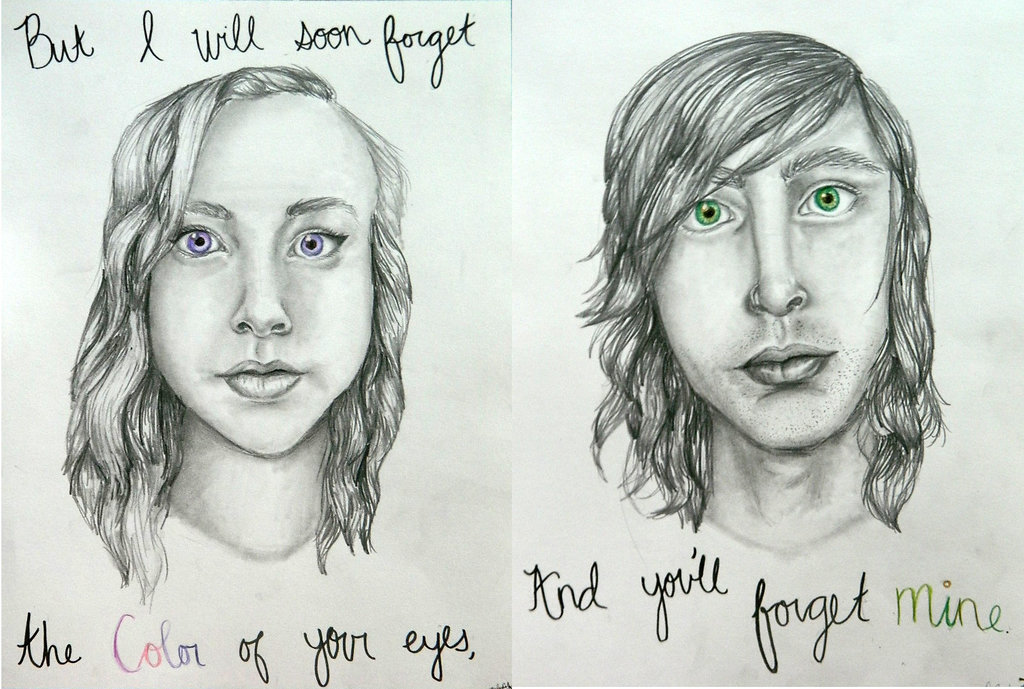 But I will soon forget
the Color of your eyes,
And you'll forget mine.